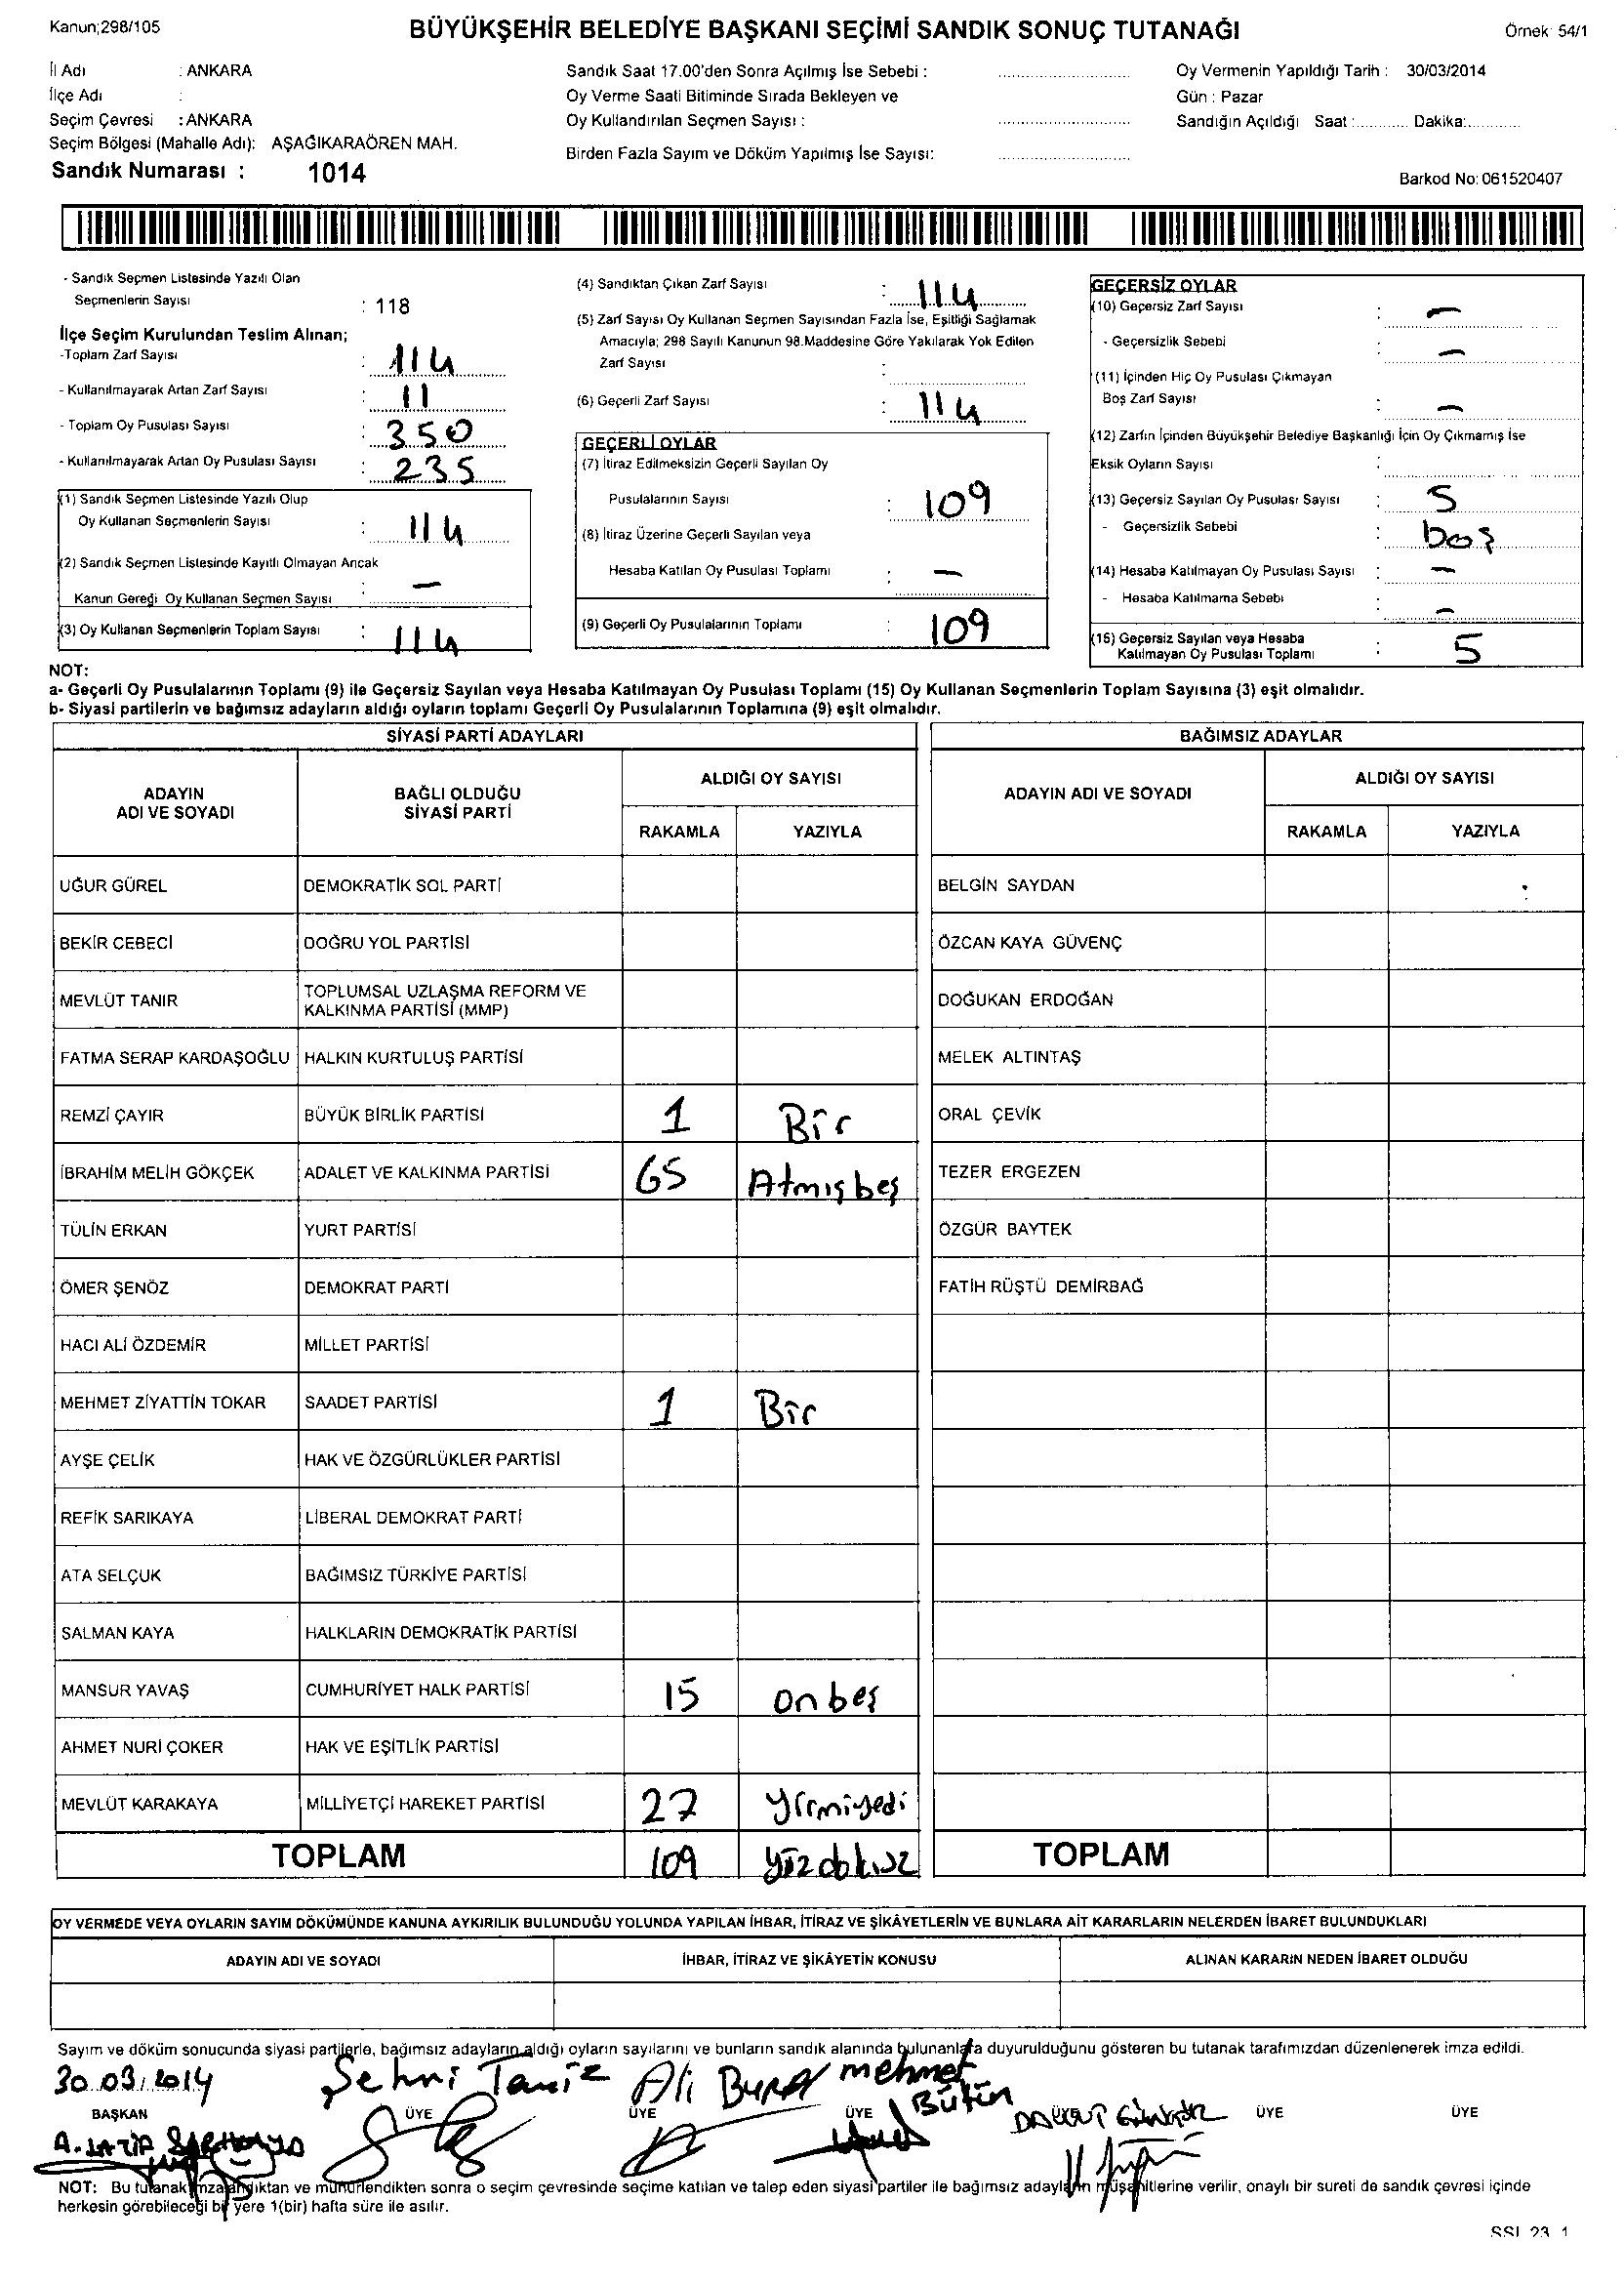 Kanun;298/105
BÜYÜKŞEHİR BELEDİYE BAŞKANI SEÇİMİ SANDIK SONUÇ TUTANAĞI
Örnek: 54/1
İl Adı : ANKARA
İlçe Adı :
Seçim Çevresi : ANKARA
Seçim Bölgesi (Mahalle Adı): AŞAĞIKARAÖREN MAH.
Sandık Numarası : 1014
Sandık Saat 17.00'den Sonra Açılmış İse Sebebi :
Oy Verme Saati Bitiminde Sırada Bekleyen ve
Oy Kullandırılan Seçmen Sayısı :
Birden Fazla Sayım ve Döküm Yapılmış İse Sayısı:
Oy Vermenin Yapıldığı Tarih : 30/03/2014
Gün : Pazar
Sandığın Açıldığı Saat :........... Dakika:...........
Barkod No: 061520407
- Sandık Seçmen Listesinde Yazılı Olan
Seçmenlerin Sayısı : 118
İlçe Seçim Kurulundan Teslim Alınan;
-Toplam Zarf Sayısı : 114
- Kullanılmayarak Artan Zarf Sayısı : 11
- Toplam Oy Pusulası Sayısı : 350
- Kullanılmayarak Artan Oy Pusulası Sayısı : 235
(1) Sandık Seçmen Listesinde Yazılı Olup
Oy Kullanan Seçmenlerin Sayısı : 114
(2) Sandık Seçmen Listesinde Kayıtlı Olmayan Ancak
Kanun Gereği Oy Kullanan Seçmen Sayısı : —
(3) Oy Kullanan Seçmenlerin Toplam Sayısı : 114
(4) Sandıktan Çıkan Zarf Sayısı : 114
(5) Zarf Sayısı Oy Kullanan Seçmen Sayısından Fazla İse, Eşitliği Sağlamak
Amacıyla; 298 Sayılı Kanunun 98.Maddesine Göre Yakılarak Yok Edilen
Zarf Sayısı :
(6) Geçerli Zarf Sayısı : 114
GEÇERLİ OYLAR
(7) İtiraz Edilmeksizin Geçerli Sayılan Oy
Pusulalarının Sayısı : 109
(8) İtiraz Üzerine Geçerli Sayılan veya
Hesaba Katılan Oy Pusulası Toplamı : —
(9) Geçerli Oy Pusulalarının Toplamı : 109
GEÇERSİZ OYLAR
(10) Geçersiz Zarf Sayısı : —
- Geçersizlik Sebebi : —
(11) İçinden Hiç Oy Pusulası Çıkmayan
Boş Zarf Sayısı : —
(12) Zarfın İçinden Büyükşehir Belediye Başkanlığı İçin Oy Çıkmamış İse
Eksik Oyların Sayısı :
(13) Geçersiz Sayılan Oy Pusulası Sayısı : 5
- Geçersizlik Sebebi : boş
(14) Hesaba Katılmayan Oy Pusulası Sayısı : —
- Hesaba Katılmama Sebebi : —
(15) Geçersiz Sayılan veya Hesaba
Katılmayan Oy Pusulası Toplamı : 5
NOT:
a- Geçerli Oy Pusulalarının Toplamı (9) ile Geçersiz Sayılan veya Hesaba Katılmayan Oy Pusulası Toplamı (15) Oy Kullanan Seçmenlerin Toplam Sayısına (3) eşit olmalıdır.
b- Siyasi partilerin ve bağımsız adayların aldığı oyların toplamı Geçerli Oy Pusulalarının Toplamına (9) eşit olmalıdır.
SİYASİ PARTİ ADAYLARI
ADAYIN ADI VE SOYADI
BAĞLI OLDUĞU SİYASİ PARTİ
ALDIĞI OY SAYISI
RAKAMLA YAZIYLA
UĞUR GÜREL DEMOKRATİK SOL PARTİ
BEKİR CEBECİ DOĞRU YOL PARTİSİ
MEVLÜT TANIR TOPLUMSAL UZLAŞMA REFORM VE
KALKINMA PARTİSİ (MMP)
FATMA SERAP KARDAŞOĞLU HALKIN KURTULUŞ PARTİSİ
REMZİ ÇAYIR BÜYÜK BİRLİK PARTİSİ 1 Bir
İBRAHİM MELİH GÖKÇEK ADALET VE KALKINMA PARTİSİ 65 Atmışbeş
TÜLİN ERKAN YURT PARTİSİ
ÖMER ŞENÖZ DEMOKRAT PARTİ
HACI ALİ ÖZDEMİR MİLLET PARTİSİ
MEHMET ZİYATTİN TOKAR SAADET PARTİSİ 1 Bir
AYŞE ÇELİK HAK VE ÖZGÜRLÜKLER PARTİSİ
REFİK SARIKAYA LİBERAL DEMOKRAT PARTİ
ATA SELÇUK BAĞIMSIZ TÜRKİYE PARTİSİ
SALMAN KAYA HALKLARIN DEMOKRATİK PARTİSİ
MANSUR YAVAŞ CUMHURİYET HALK PARTİSİ 15 onbeş
AHMET NURİ ÇOKER HAK VE EŞİTLİK PARTİSİ
MEVLÜT KARAKAYA MİLLİYETÇİ HAREKET PARTİSİ 27 yirmiyedi
TOPLAM 109 yüzdokuz
BAĞIMSIZ ADAYLAR
ADAYIN ADI VE SOYADI
ALDIĞI OY SAYISI
RAKAMLA YAZIYLA
BELGİN SAYDAN
ÖZCAN KAYA GÜVENÇ
DOĞUKAN ERDOĞAN
MELEK ALTINTAŞ
ORAL ÇEVİK
TEZER ERGEZEN
ÖZGÜR BAYTEK
FATİH RÜŞTÜ DEMİRBAĞ
TOPLAM
OY VERMEDE VEYA OYLARIN SAYIM DÖKÜMÜNDE KANUNA AYKIRILIK BULUNDUĞU YOLUNDA YAPILAN İHBAR, İTİRAZ VE ŞİKÂYETLERİN VE BUNLARA AİT KARARLARIN NELERDEN İBARET BULUNDUKLARI
ADAYIN ADI VE SOYADI İHBAR, İTİRAZ VE ŞİKÂYETİN KONUSU ALINAN KARARIN NEDEN İBARET OLDUĞU
Sayım ve döküm sonucunda siyasi partilerle, bağımsız adayların aldığı oyların sayılarını ve bunların sandık alanında bulunanlara duyurulduğunu gösteren bu tutanak tarafımızdan düzenlenerek imza edildi.
30.03.2014
Ali mehmet
Bütün
BAŞKAN ÜYE ÜYE ÜYE ÜYE ÜYE
NOT: Bu tutanak imzalandıktan ve mühürlendikten sonra o seçim çevresinde seçime katılan ve talep eden siyasi partiler ile bağımsız adayların müşahitlerine verilir, onaylı bir sureti de sandık çevresi içinde
herkesin görebileceği bir yere 1(bir) hafta süre ile asılır.
SSI 23 1